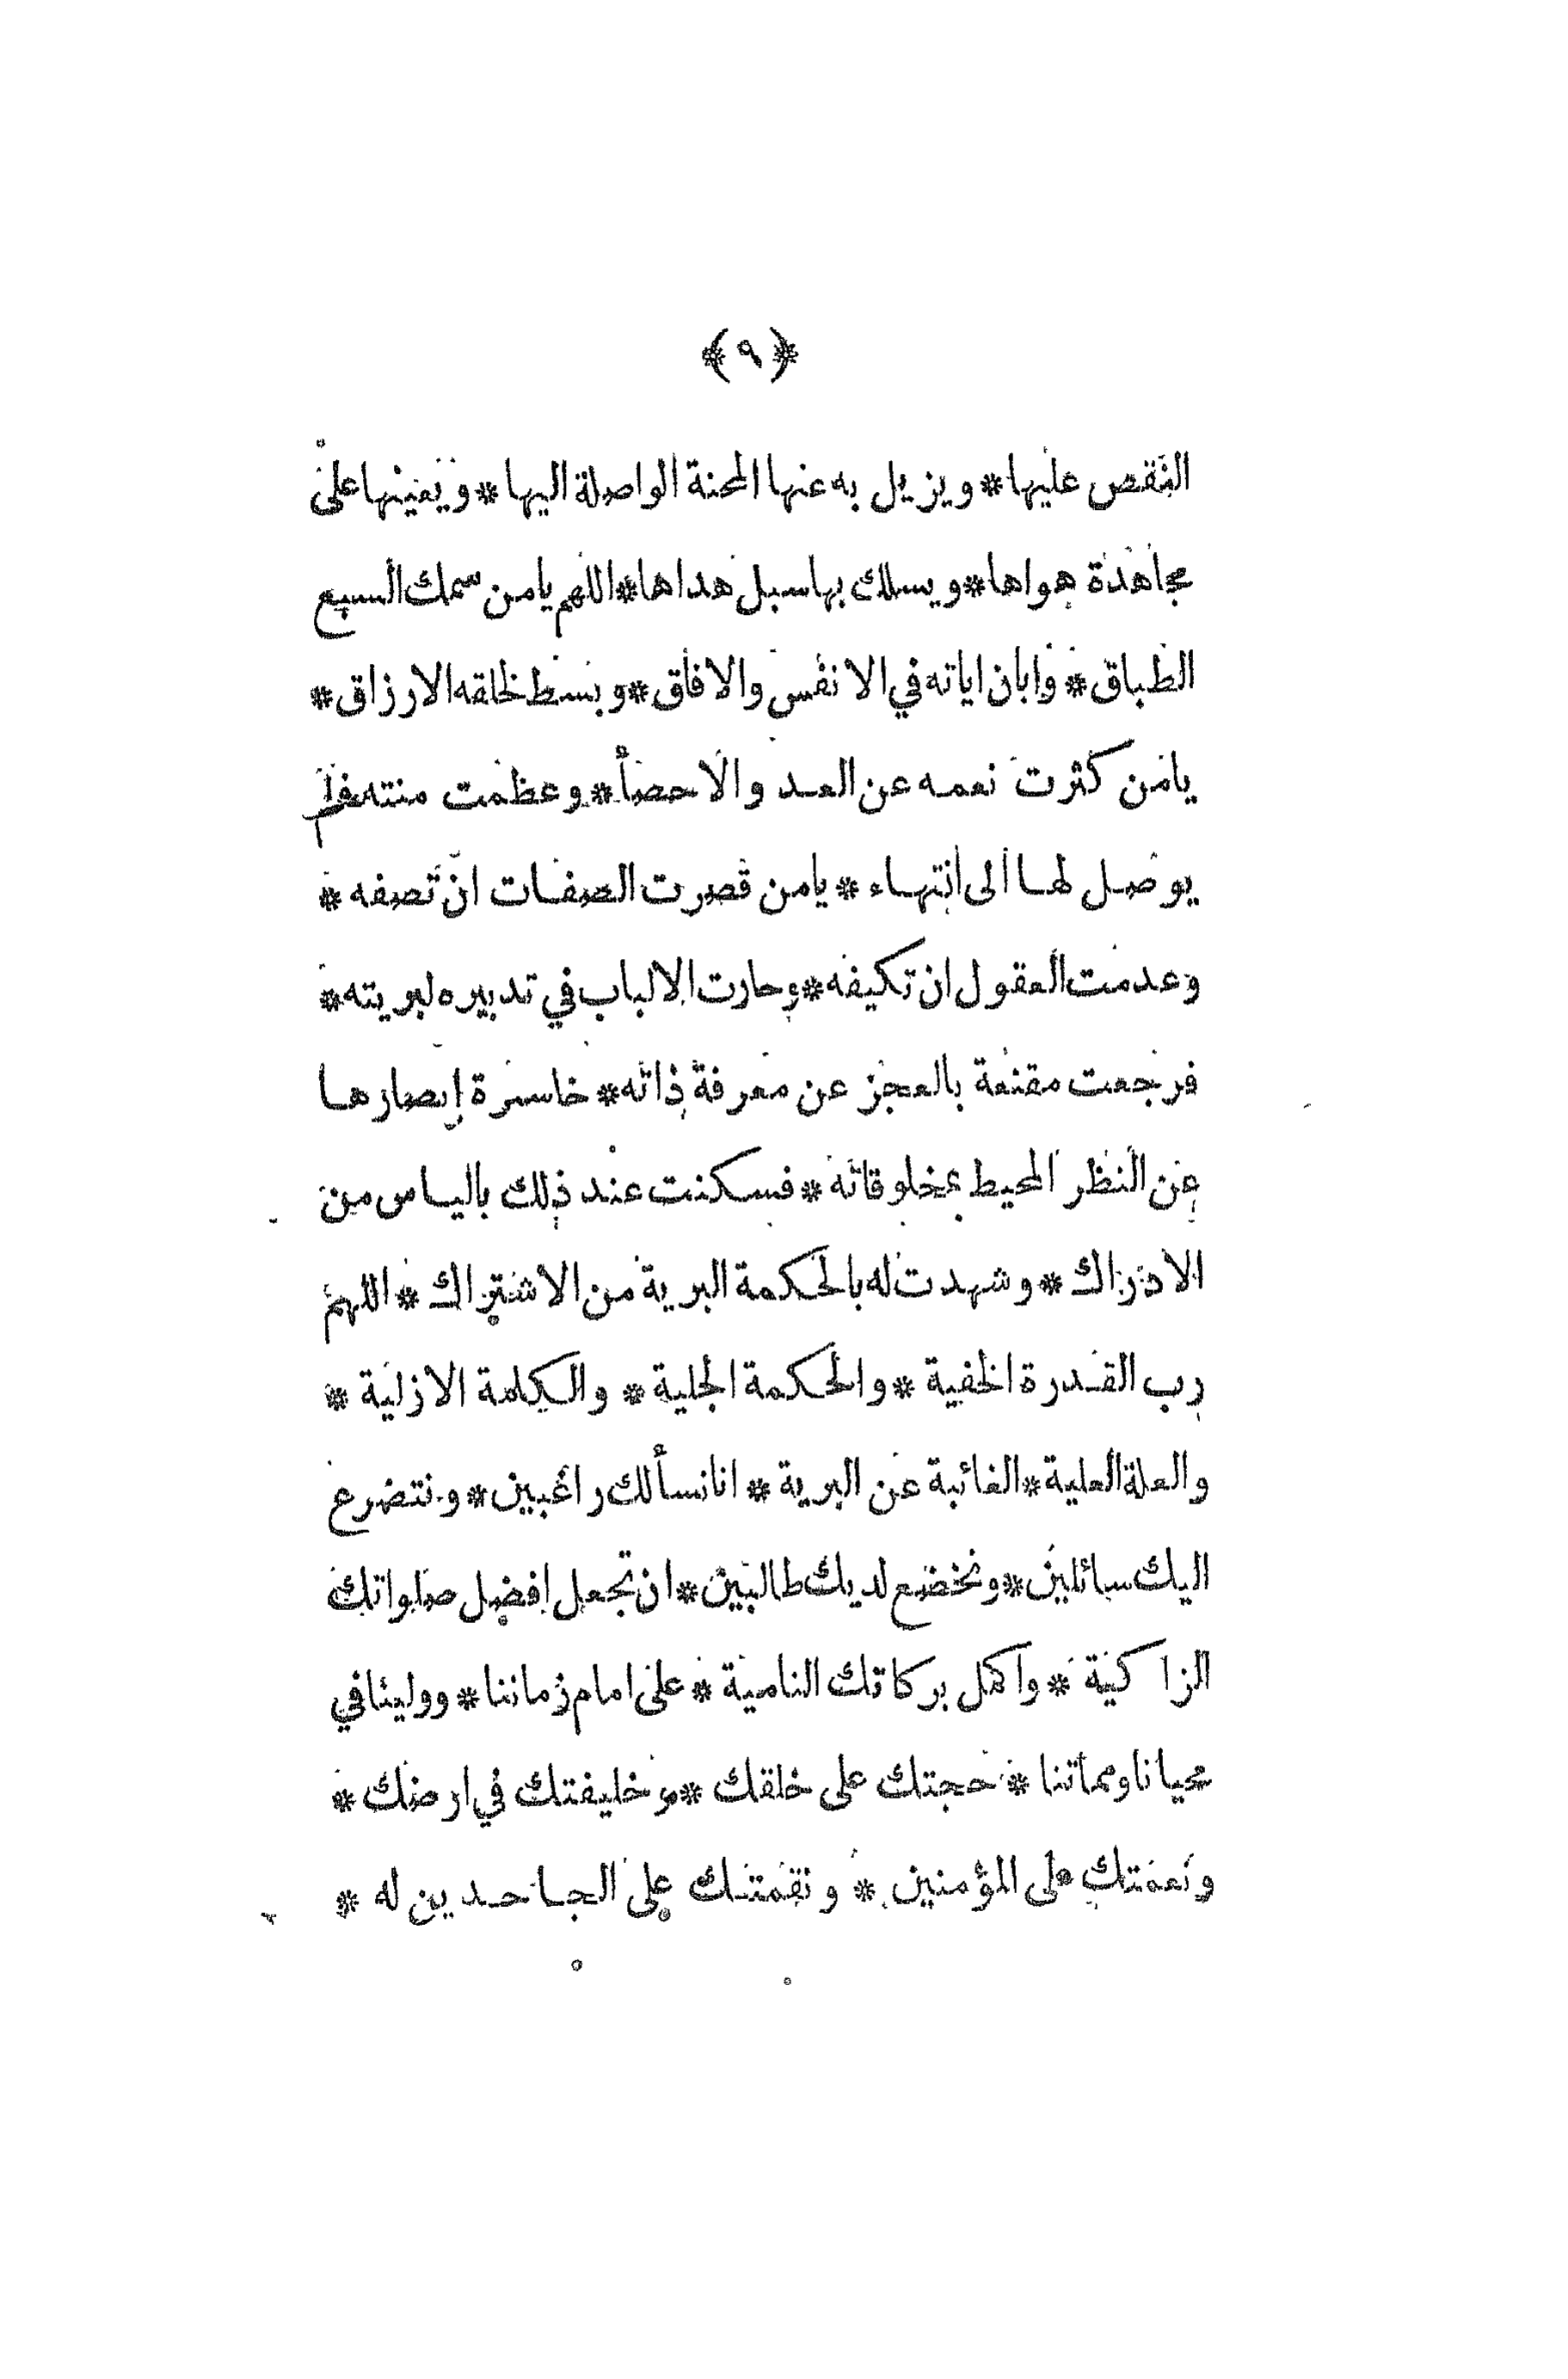 ﴿ ٩ ﴾
النقص عليها * ويزيل به عنها المحنة الواصلة اليها * ويعينها على
مجاهدة هواها * ويسلك بها سبل هداها * اللهم يامن سمك السبع
الطباق * وابان اياته في الانفس والافاق * وبسط لخلقه الارزاق *
يامن كثرت نعمه عن العد والاحصأ * وعظمت منته فلم
يوصل لها الى انتهاء * يامن قصرت الصفات ان تصفه *
وعدمت العقول ان تكيفه * وحارت الالباب في تدبيره لبريته *
فرجعت مقنعة بالعجز عن معرفة ذاته * خاسرة ابصارها
عن النظر المحيط بمخلوقاته * فسكنت عند ذلك بالياس من
الادراك * وشهدت له بالحكمة البرية من الاشتراك * اللهم
رب القدرة الخفية * والحكمة الجلية * والكلمة الازلية *
والعلة العلية * الغائبة عن البرية * انا نسألك راغبين * ونتضرع
اليك سائلين * ونخضع لديك طالبين * ان تجعل افضل صلواتك
الزاكية * واكمل بركاتك النامية * على امام زماننا * وولينا في
محيانا ومماتنا * حجتك على خلقك * وخليفتك في ارضك *
ونعمتك على المؤمنين * ونقمتك على الجاحدين له *